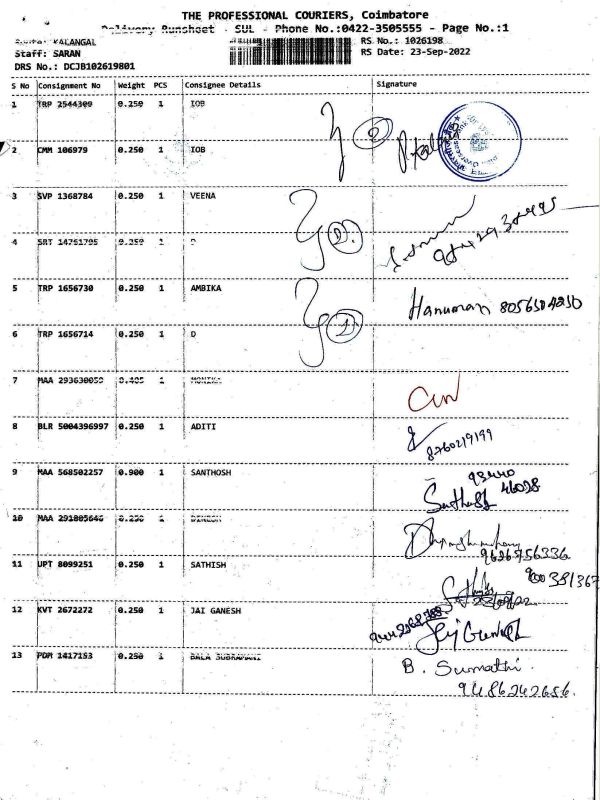 THE PROFESSIONAL COURIERS, Coimbatore
Delivery Runsheet - SUL - Phone No.:0422-3505555 - Page No.:1
Route: KALANGAL
RS No.: 1026198
Staff: SARAN
RS Date: 23-Sep-2022
DRS No.: DCJB102619801
S No Consignment No Weight PCS Consignee Details Signature
1 TRP 2544309 0.250 1 IOB
2 CMM 106979 0.250 1 IOB
3 SVP 1368784 0.250 1 VEENA
4 SRT 14751795 0.250 1 D
5 TRP 1656730 0.250 1 AMBIKA Hanuman 8056504230
6 TRP 1656714 0.250 1 D
7 MAA 293630059 0.405 1 MONIKA
8 BLR 5004396997 0.250 1 ADITI 8760219199
9 MAA 568502257 0.900 1 SANTHOSH 93440 46028
10 MAA 291805646 0.250 1 DINESH 9626756336
11 UPT 8099251 0.250 1 SATHISH
12 KVT 2672272 0.250 1 JAI GANESH
13 PDM 1417193 0.250 1 BALA SUBRAMANI B. Sumathi.
9486242656.